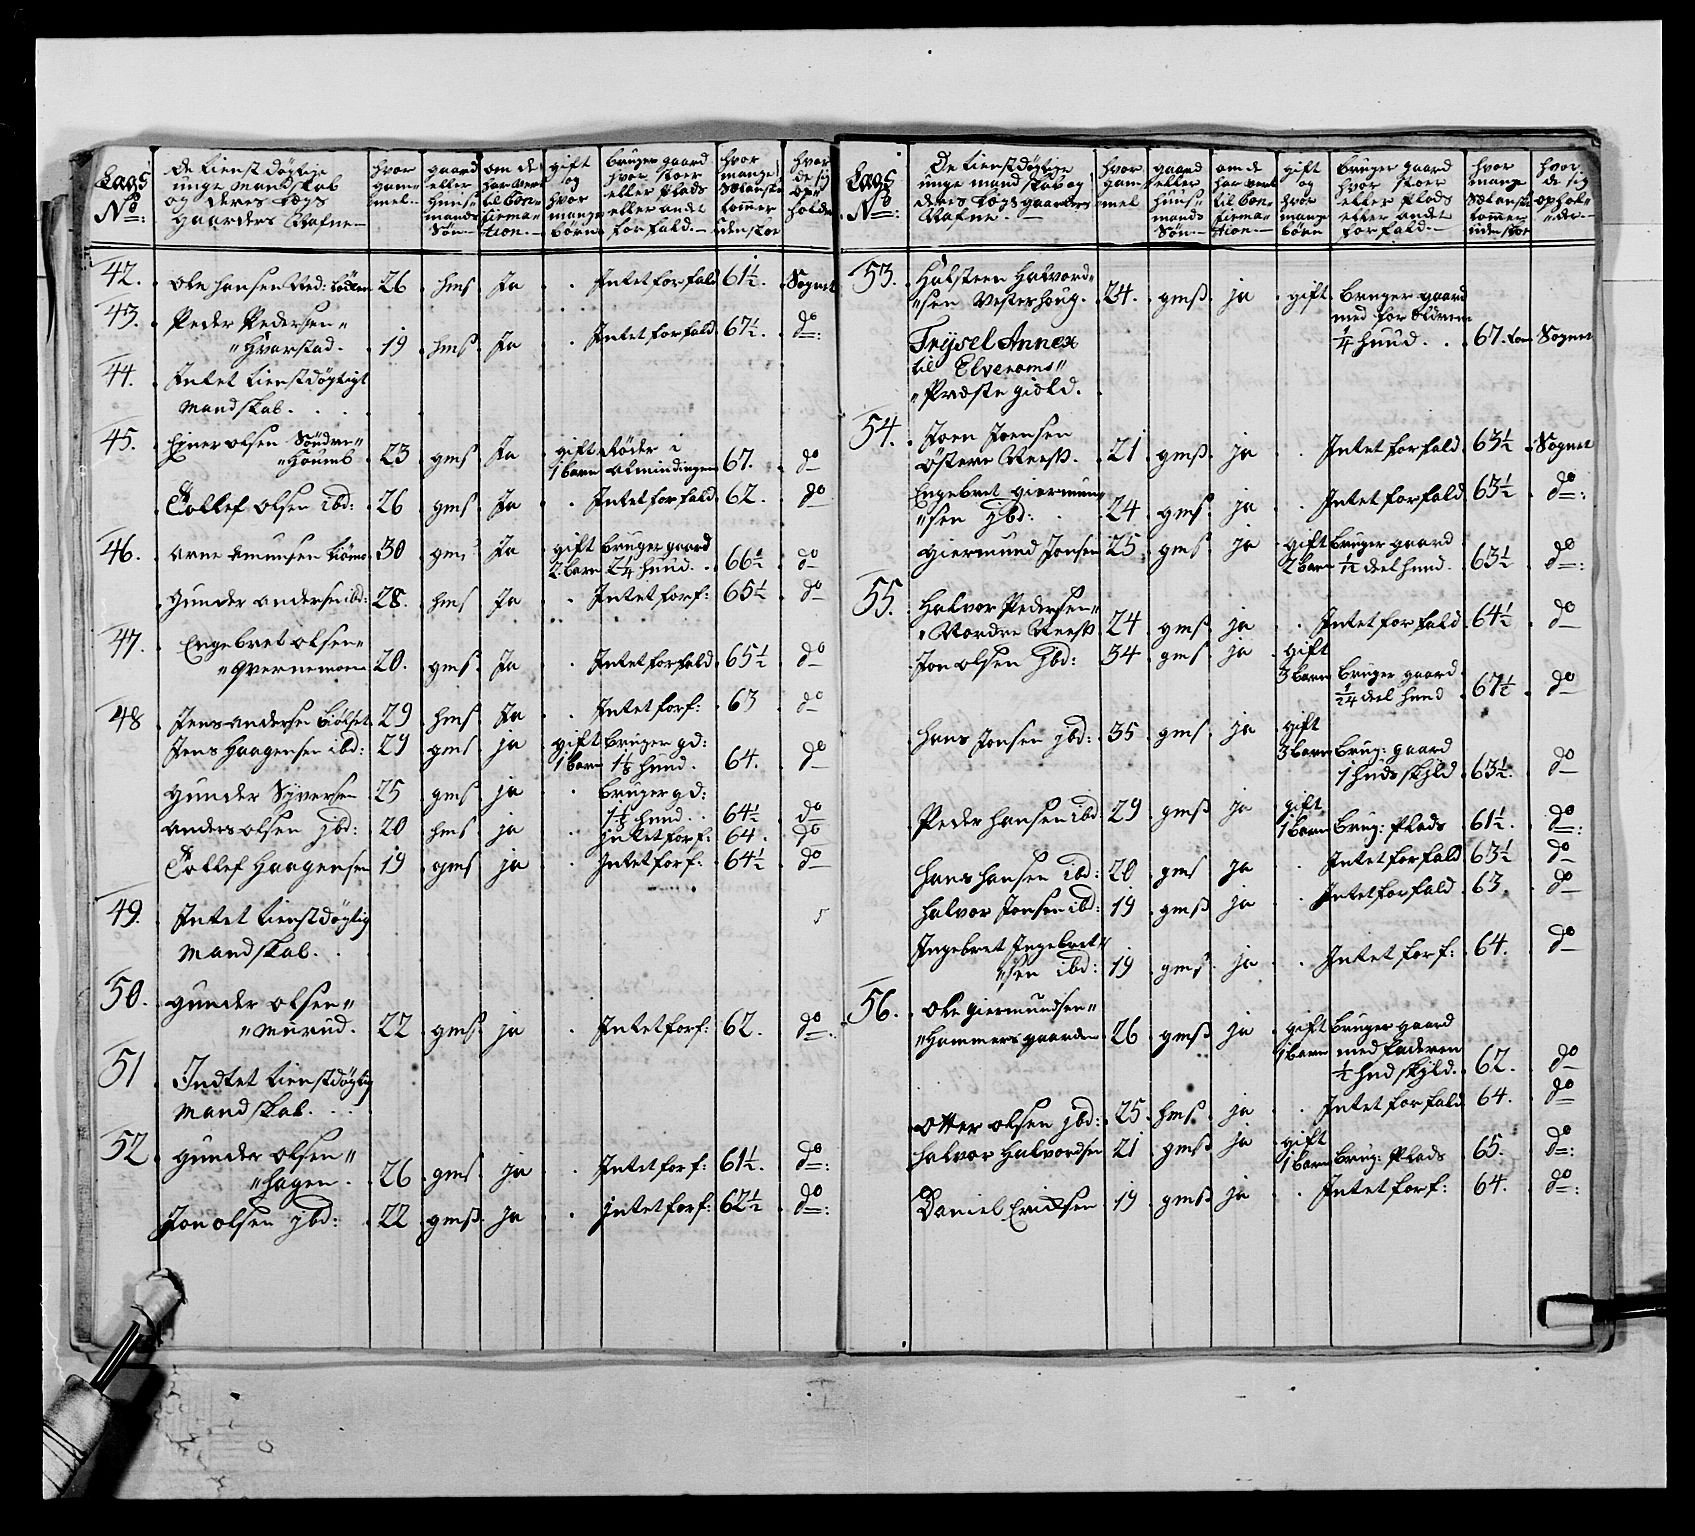 Lags No:
De tienstdøgtige unge Mandskab og deres Lægs Gaarders Nafne
hvor gammel
gaard eller Huusmands Søn
om de har vert til Confirmation
gift og hvor mange børn
bruger gaard hvor stoer eller Plads eller andet forfald
hvor mange Sælanske tommer uden skoe
hvor de sig opholde
42. Ole Hansen Ned: 26 hms Ja Intet forfald 61½ Sognet
43. Peder Pedersen
Hvarstad 19 hms Ja Intet forfald 67½ do
44. Intet tienstdøgtigt
Mandskab
45. Einer Olsen Søndre
Houmb 23 gms Ja gift 1 barn Røder i Almindingen 67. do
Tollef Olsen ibd: 26 gms Ja Intet forfald 62. do
46. Arne Amunsen 30 gms Ja gift 2 barn bruger gaard 2¼ hund. 66½ do
Gunder Andersen ibd: 28. hms Ja Intet forf: 65½ do
47. Engebret Olsen
Qvernemoen 20. gms Ja Intet forfald 65½ do
48 Jens Andersen Biølset 29 hms Ja Intet forf: 63 do
Jens Haagensen ibd: 29 gms ja gift 1 barn bruger gd: 1⅓ hund. 64. do
Gunder Syversen 25 gms ja bruger gd: 1⅓ hund. 64½ do
Anders Olsen Jbd: 20 hms ja Intet forf: 64. do
Tollef Haagensen 19 gms ja Intet forf: 64½ do
49. Intet tienstdøgtig
Mandskab.
50. Gunder Olsen
Murud. 22 gms ja Intet forf: 62. do
51 Indtet tienstdøgtig
Mandskab.
52 Gunder Olsen
Hagen. 26 gms ja Intet forf: 61½. do
Jon Olsen Jbd: 22 gmß ja Intet forf: 62½ do
Lags No:
De tienstdøgtige unge Mandskab og deres Lægs gaarders Nafne
hvor gammel
gaard eller huusmands Søn
om de har vert til Confirmation
gift og hvor mange børn
bruger gaard hvor stoer eller Plads eller andet forfald
hvor mange Sælanske tommer uden skoe
hvor de sig opholder
53. Halsteen Halvord
sen Vesterhoug. 24. gmß ja gift bruger gaard med forældrene ¼ hund. 67. tom Sognet
Trysel Annex
til Elveroms
Præstegield.
54. Joen Joensen
Østere Neeß. 21 gmß ja Intet forfald 63½ Sognet
Engebret Giermund
sen Jbd: 24 gmß ja Intet forfald 63½ do
Giermund Jonsen 25 gmß ja gift 2 barn bruger gaard 1/12 deel hund. 63½ do
55. Halvor Pedersen
Nordre Neeß 24 gmß ja Intet forfald 64½ do
Jon Olsen Jbd: 34 gmß ja gift 3 barn bruger gaard 1/24 deel hund 67½ do
Hans Jonsen Jbd: 35 gmß ja gift 3 barn brug: gaard 1 huds skyld 63½. do
Peder Hansen ibd 29 gmß ja gift 1 barn brug: Plads 61½. do
Hans Hansen ibd: 20 gms ja Intet forfald 63½ do
Halvor Jonsen ibd: 19 gmß ja Intet forfald 63. do
Ingebret Ingebret
sen ibd: 19 gmß ja Intet forf: 64. do
56. Ole Giermundsen
Hammersgaarden 26 gmß ja gift 1 barn bruger gaard med faderen ½ hud skyld. 62. do
Otter Olsen Jbd: 25 hmß ja Intet forfald 64. do
Halvor Halvordsen 21 gmß ja gift 1 barn brug: Plads 65. do
Daniel Ericksen 19 gmß ja Intet forf: 64. do